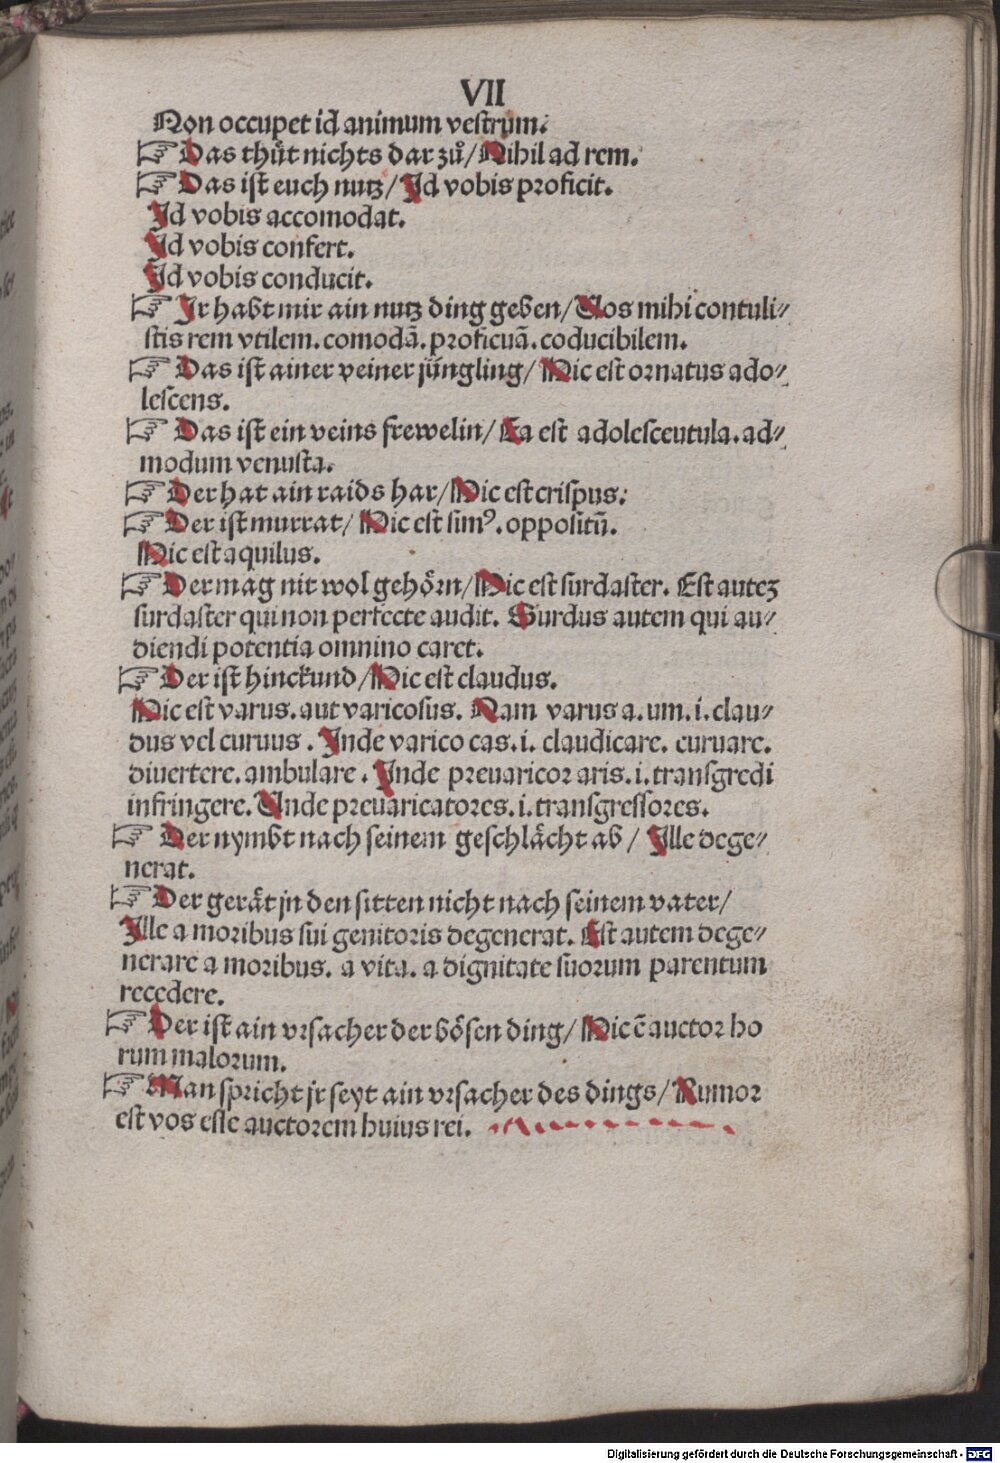 VII
Non occupet id animum vestrum.
☞ Das thůt nichts dar zů/ Nihil ad rem.
☞ Das ist euch nutz/ Id vobis proficit.
Id vobis accomodat.
Id vobis confert.
Id vobis conducit.
☞ Ir habt mir ain nutz ding geben/ Vos mihi contuli⸗
stis rem vtilem. comodã. proficuã. coducibilem.
☞ Das ist ainer veiner jüngling/ Hic est ornatus ado⸗
lescens.
☞ Das ist ein veins frewelin/ Ea est adolesceutula. ad⸗
modum venusta.
☞ Der hat ain raids har/ Hic est crispus.
☞ Der ist murrat/ Hic est simꝰ. oppositũ.
Hic est aquilus.
☞ Der mag nit wol gehörn/ Hic est surdaster. Est auteꝫ
surdaster qui non perfecte audit. Surdus autem qui au⸗
diendi potentia omnino caret.
☞ Der ist hinckund/ Hic est claudus.
Hic est varus. aut varicosus. Nam varus a. um. i. clau⸗
dus vel curuus. Inde varico cas. i. claudicare. curuare.
diuertere. ambulare. Inde preuaricor aris. i. transgredi
infringere. Unde preuaricatores. i. transgressores.
☞ Der nymbt nach seinem geschlächt ab/ Ille dege⸗
nerat.
☞ Der gerät jn den sitten nicht nach seinem vater/
Ille a moribus sui genitoris degenerat. Est autem dege⸗
nerare a moribus. a vita. a dignitate suorum parentum
recedere.
☞ Der ist ain vrsacher der bösen ding/ Hic ẽ auctor ho
rum malorum.
☞ Man spricht jr seyt ain vrsacher des dings/ Rumor
est vos esse auctorem huius rei.
Digitalisierung gefördert durch die Deutsche Forschungsgemeinschaft - DFG